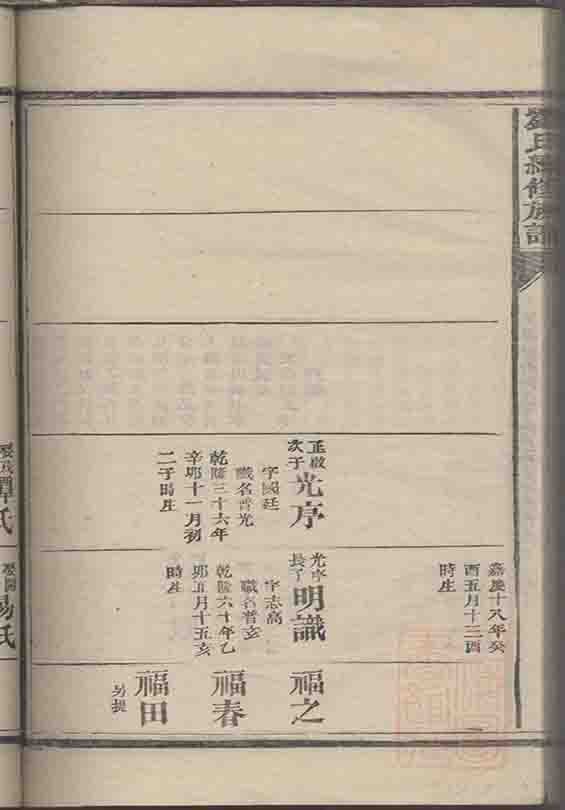 氏續修族譜
嘉慶十八年癸
酉五月十三酉
時生
正啟
次子
光序
字國廷
職名普光
乾隆三十六年
辛卯十一月初
二子時生
光序
長子
明識
字志高
職名普玄
乾隆六十年乙
卯五月十五亥
時生
福之
福春
福田
另提
譚氏
易氏